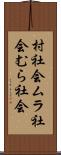 村社会ムラ社
会むら社会